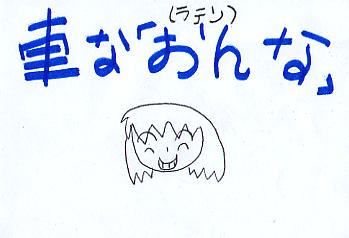 (ラテン)
車な「おんな」